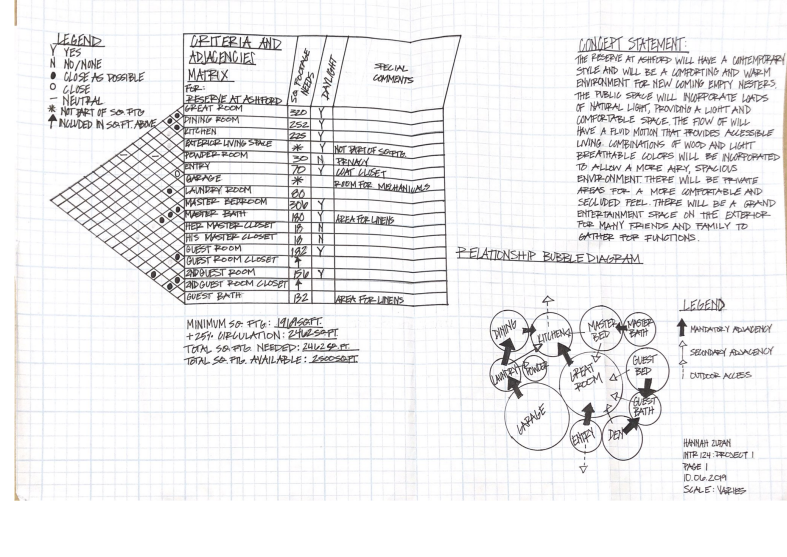 LEGEND
Y YES
N NO/NONE
● CLOSE AS POSSIBLE
○ CLOSE
— NEUTRAL
* NOT PART OF SQ. FTG
↑ INCLUDED IN SQ. FT. ABOVE
CRITERIA AND
ADJACENCIES
MATRIX
FOR:
RESERVE AT ASHFORD
SQ. FOOTAGE
NEEDS
DAYLIGHT
SPECIAL
COMMENTS
GREAT ROOM 320 Y
DINING ROOM 252 Y
KITCHEN 225 Y
EXTERIOR LIVING SPACE * Y NOT PART OF SQ. FTG.
POWDER ROOM 30 N PRIVACY
ENTRY 70 Y COAT CLOSET
GARAGE * ROOM FOR MECHANICALS
LAUNDRY ROOM 80
MASTER BEDROOM 306 Y
MASTER BATH 180 Y AREA FOR LINENS
HER MASTER CLOSET 18 N
HIS MASTER CLOSET 18 N
GUEST ROOM 192 Y
GUEST ROOM CLOSET ↑
2ND GUEST ROOM 156 Y
2ND GUEST ROOM CLOSET ↑
GUEST BATH 132 AREA FOR LINENS
MINIMUM SQ. FTG: 1969 SQ FT.
+25% CIRCULATION: 2462 SQ. FT
TOTAL SQ. FTG. NEEDED: 2462 SQ. FT
TOTAL SQ. FTG. AVAILABLE: 2500 SQ FT
CONCEPT STATEMENT:
THE RESERVE AT ASHFORD WILL HAVE A CONTEMPORARY
STYLE AND WILL BE A COMFORTING AND WARM
ENVIRONMENT FOR NEW COMING EMPTY NESTERS.
THE PUBLIC SPACE WILL INCORPORATE LOADS
OF NATURAL LIGHT, PROVIDING A LIGHT AND
COMFORTABLE SPACE. THE FLOW OF WILL
HAVE A FLUID MOTION THAT PROVIDES ACCESSIBLE
LIVING. COMBINATIONS OF WOOD AND LIGHT
BREATHABLE COLORS WILL BE INCORPORATED
TO ALLOW A MORE AIRY, SPACIOUS
ENVIRONMENT. THERE WILL BE PRIVATE
AREAS FOR A MORE COMFORTABLE AND
SECLUDED FEEL. THERE WILL BE A GRAND
ENTERTAINMENT SPACE ON THE EXTERIOR
FOR MANY FRIENDS AND FAMILY TO
GATHER FOR FUNCTIONS.
RELATIONSHIP BUBBLE DIAGRAM
DINING
KITCHEN
MASTER
BED
MASTER
BATH
LAUNDRY
POWDER
GREAT
ROOM
GUEST
BED
GUEST
BATH
GARAGE
ENTRY
DEN
LEGEND
MANDATORY ADJACENCY
SECONDARY ADJACENCY
OUTDOOR ACCESS
HANNAH ZUPAN
INTR 124: PROJECT 1
PAGE 1
10.06.2019
SCALE: VARIES